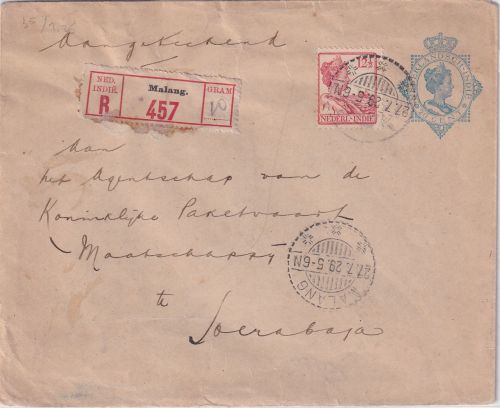 Aangeteekend
NED.
INDIË.
R
Malang.
457
GRAM
10
12½
NEDERL.-INDIE
NEDERLANDSCH-INDIE
CENT
27.7.29.5-6N
Aan
het Agentschap van de
Koninklijke Paketvaart
Maatschappij
te
Soerabaja
MALANG
27.7.29.5-6N